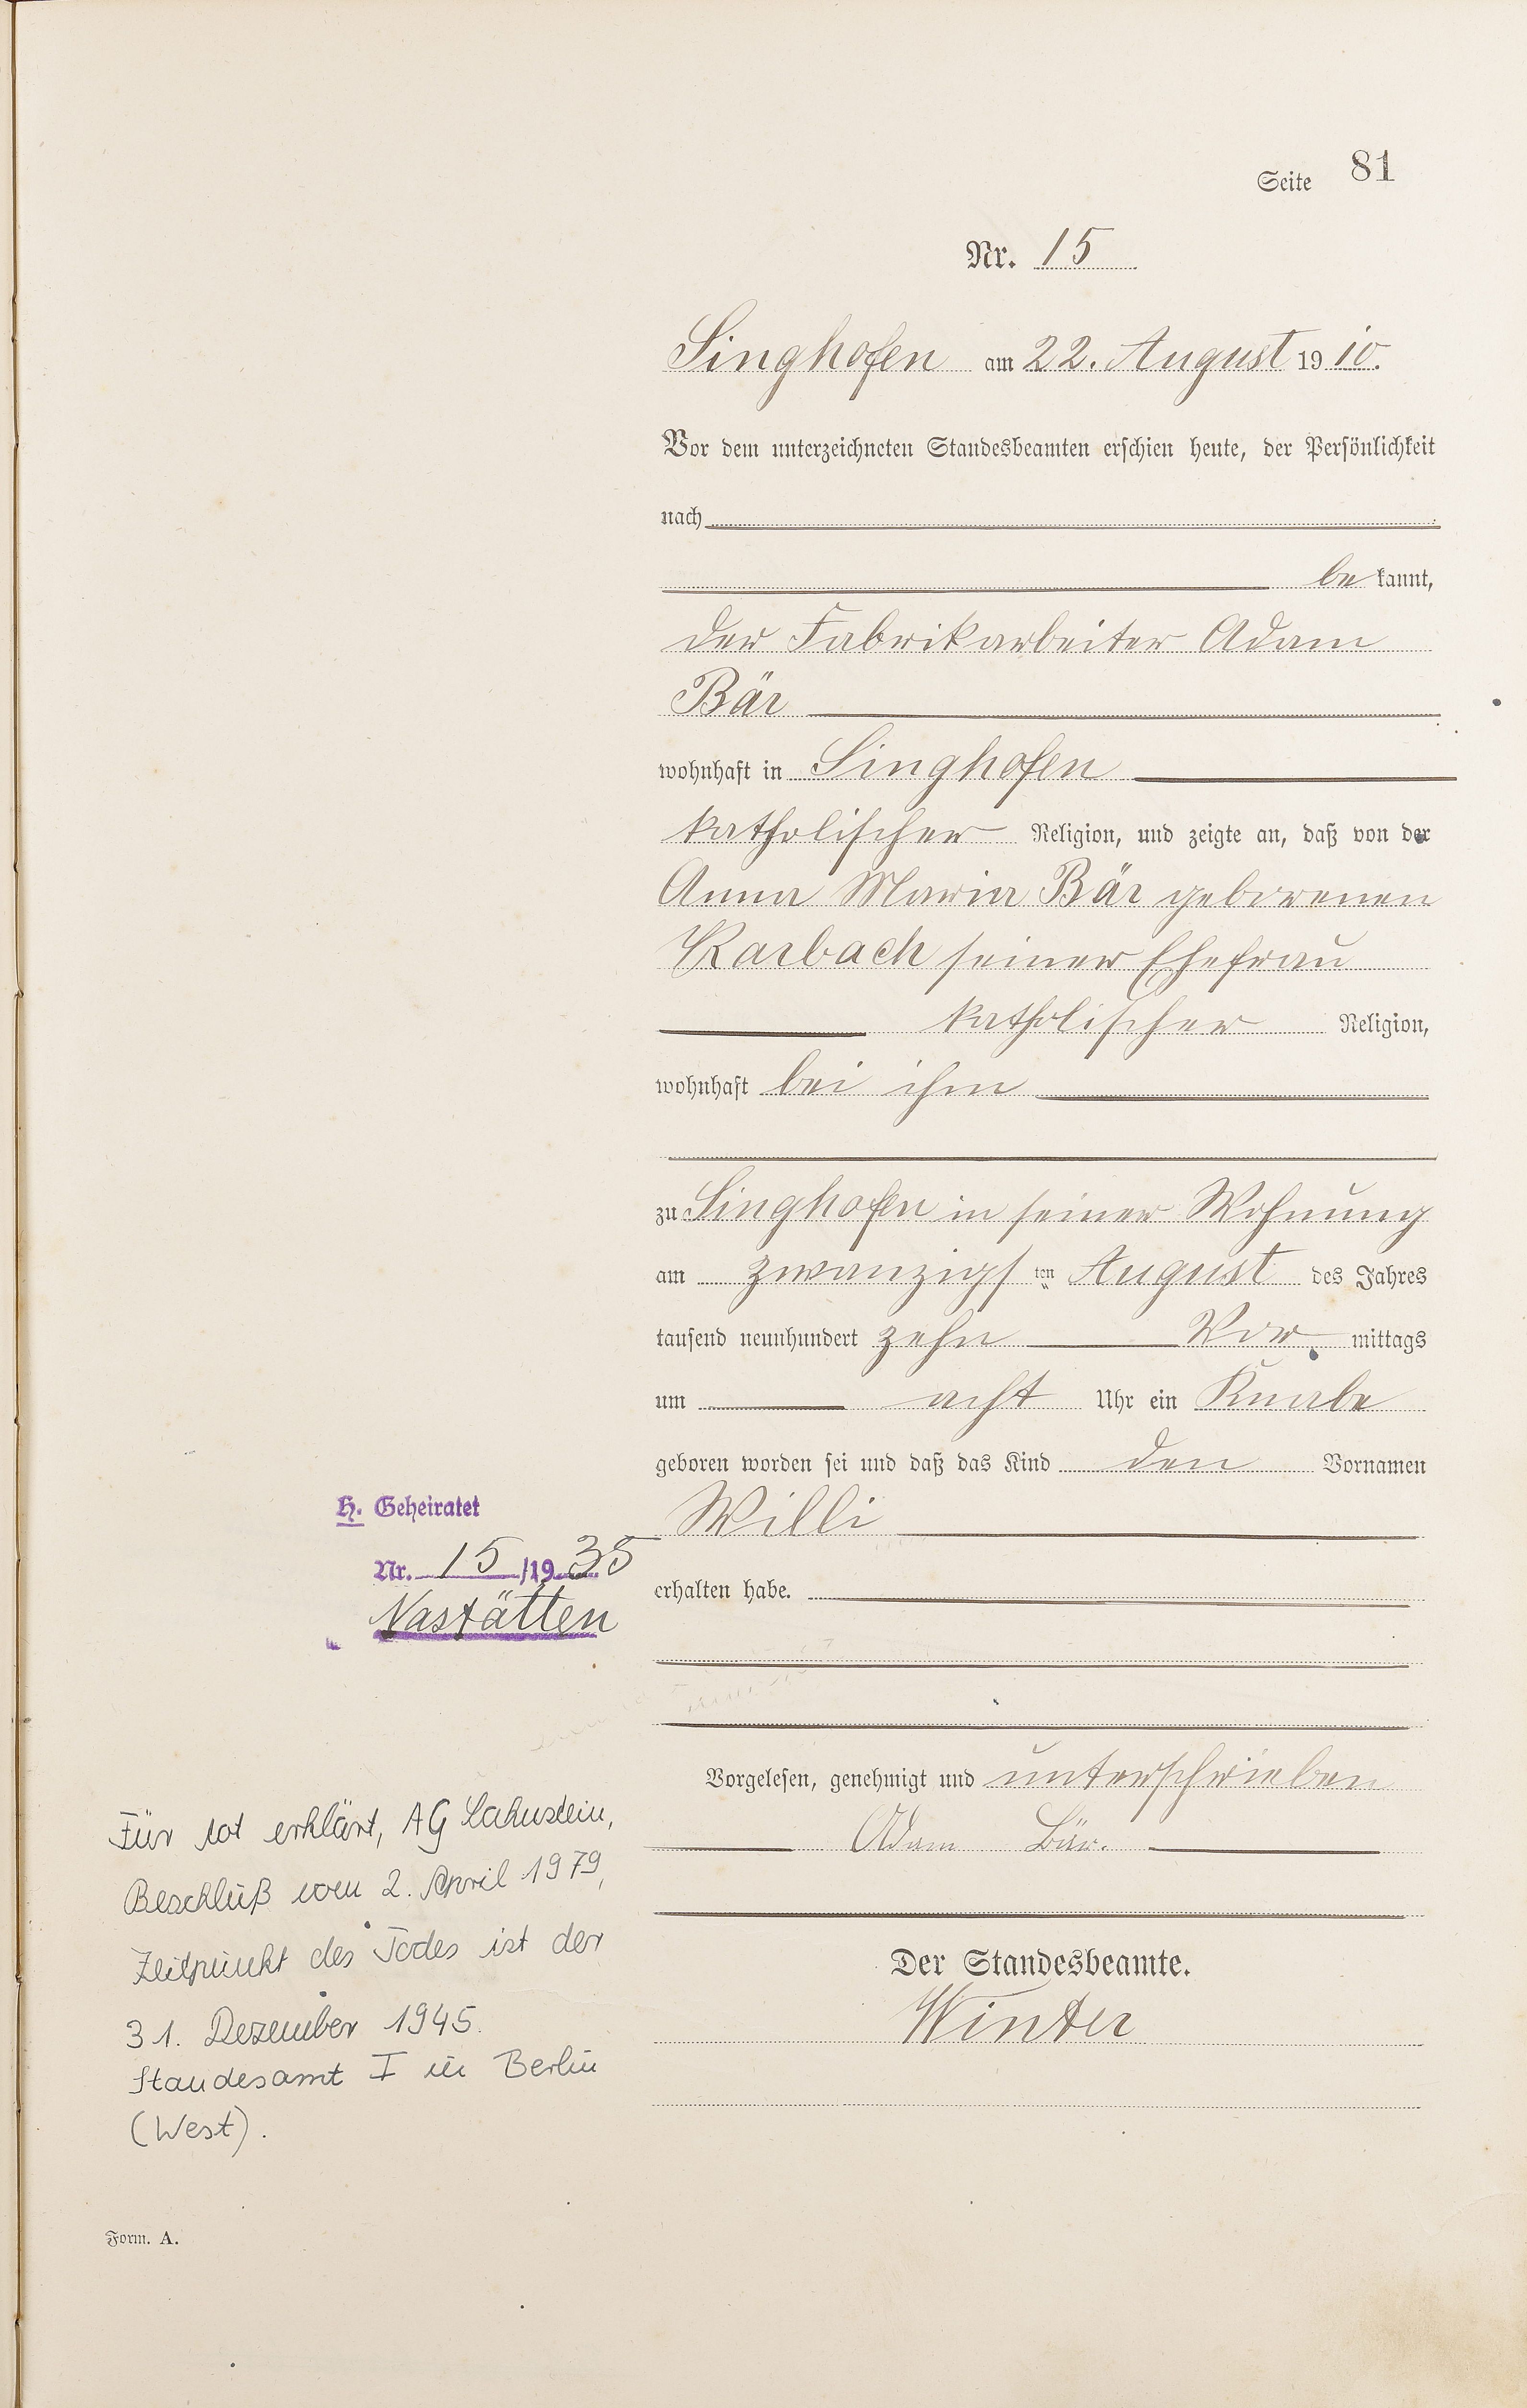 Seite 81
Nr. 15
Singhofen am 22. August 1910.
Vor dem unterzeichneten Standesbeamten erschien heute, der Persönlichkeit
nach
be kannt,
der Fabrikarbeiter Adam
Bär
wohnhaft in Singhofen
katholischer Religion, und zeigte an, daß von der
Anna Maria Bär geborenen
Karbach seiner Ehefrau
katholischer Religion,
wohnhaft bei ihm
zu Singhofen in seiner Wohnung
am zwanzigsten August des Jahres
tausend neunhundert zehn Vor mittags
um acht Uhr ein Knabe
geboren worden sei und daß das Kind den Vornamen
Willi
erhalten habe.
H. Geheiratet
Nr. 15/1935
Nastätten
Vorgelesen, genehmigt und unterschrieben
Adam Bär.
Für tot erklärt, AG Lahnstein,
Beschluß vom 2. April 1979,
Zeitpunkt des Todes ist der
31. Dezember 1945.
Standesamt I in Berlin
(West).
Der Standesbeamte.
Winter
Form. A.